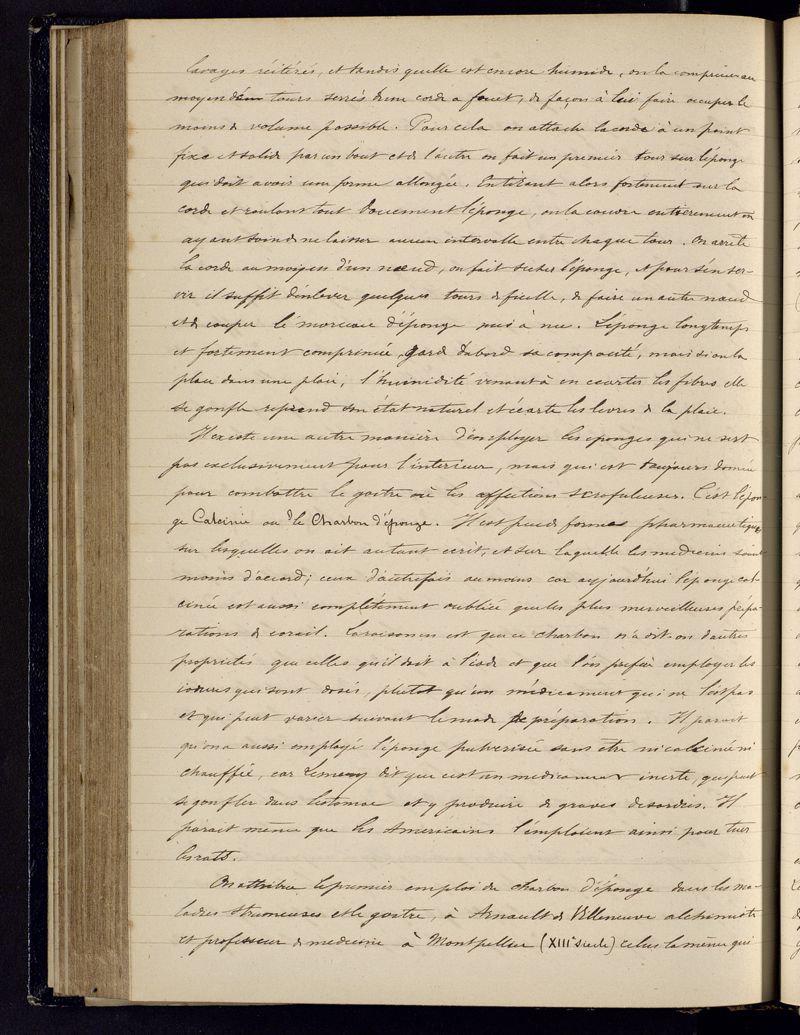 lavages réitérés, et tandis quelle est encore humide, on la comprime au
moyen de tours serrés d'une corde a fouet, de façon à lui faire occuper le
moins de volume possible. Pour cela on attache la corde à un point
fixe et solide par un bout et de l'autre on fait un premier tour sur l'éponge
qui doit avoir une forme allongée. En tirant alors fortement sur la
corde et roulant tout doucement l'éponge, on la couvre entièrement en
ayant soin de ne laisser aucun intervalle entre chaque tour. On arrête
la corde au moyen d'un nœud, on fait secher l'éponge, et pour s'en ser-
vir il suffit d'enlever quelques tours de ficelle, de faire un autre nœud
et de couper le morceau d'éponge mis à nu. L'éponge longtemps
et fortement comprimée, garde d'abord sa compacité, mais si on la
place dans une plaie, l'humidité venant à en écarter les fibres elle
se gonfle reprend son état naturel et écarte les levres de la plaie.
Il existe une autre manière d'employer les eponges qui ne sert
pas exclusivement pour l'interieur, mais qui est toujours donnée
pour combattre le goitre où les affections scrofuleuses. C'est l'épon-
ge Calcinée ou le Charbon d'éponge. Il est peu de formes pharmaceutiques
sur lesquelles on ait autant ecrit, et sur laquelle les medecins soient
moins d'accord; ceux d'autrefois au moins car aujourd'hui l'éponge cal-
cinée est aussi complètement oubliée que les plus merveilleuses prépa-
rations de corail. La raison en est que ce charbon n'a dit-on d'autres
proprietés que celles qu'il doit à l'iode et que l'on prefère employer les
iodures qui sont dosés, plutot qu'un médicament qui ne l'est pas
et qui peut varier suivant le mode de préparation. Il parait
qu'on a aussi employé l'éponge pulverisée sans être ni calcinée ni
chauffée, car Lemery dit que c'est un medicament inerte, qui peut
se gonfler dans l'estomac et y produire de graves desordres. Il
parait même que les Américains l'emploient ainsi pour tuer
les rats.
On attribue le premier emploi du charbon d'éponge dans les ma-
ladies strumeuses et le goitre, à Arnault de Villeneuve alchimiste
et professeur de medecine à Montpellier (XIIIe siecle) celui la même qui